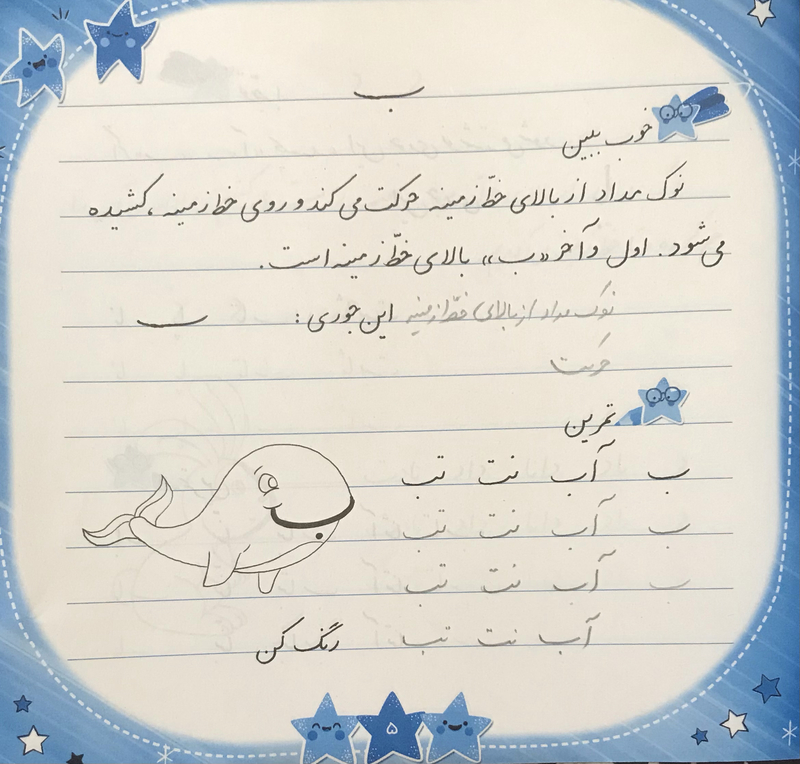 ب
خوب ببین
نوک مداد از بالای خطّ زمینه حرکت می کند و روی خط زمینه ، کشیده
می شود. اول و آخر «ب» بالای خطّ زمینه است.
نوک مداد از بالای خطّ زمینه این جوری : ب
حرکت
تمرین
ب آب نت تب
ب آب نت تب
ب آب نت تب
آب نت تب رنگ کن
۵